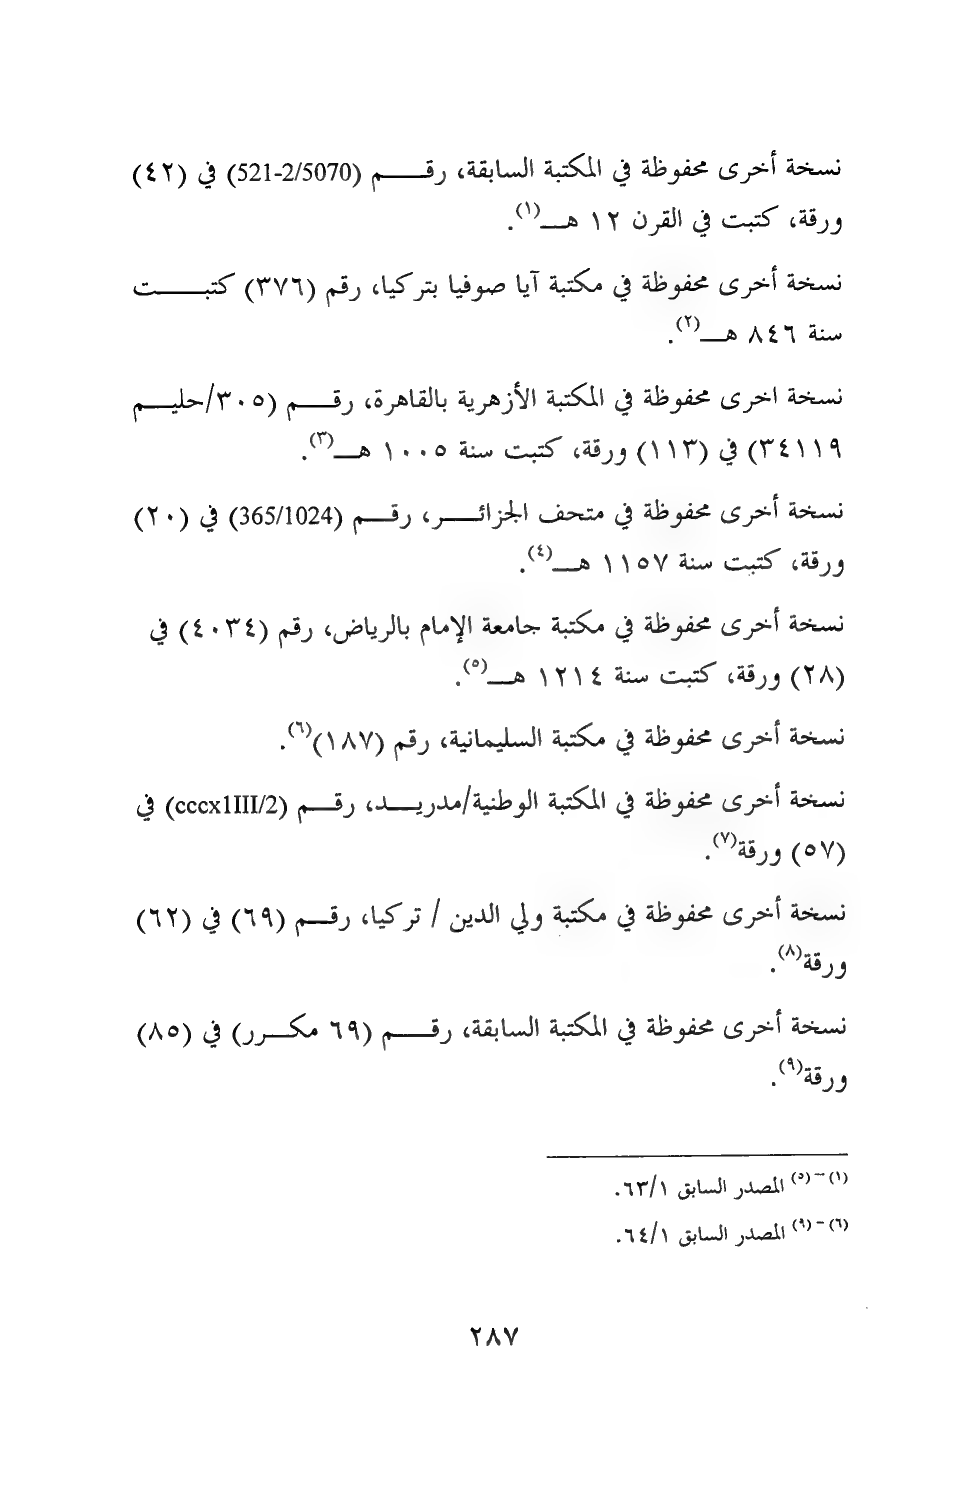 نسخة أخرى محفوظة في المكتبة السابقة، رقـــــم (521-2/5070) في (٤٢)
ورقة، كتبت في القرن ١٢ هــ(١).
نسخة أخرى محفوظة في مكتبة آيا صوفيا بتركيا، رقم (٣٧٦) كتبـــــت
سنة ٨٤٦ هــ(٢).
نسخة اخرى محفوظة في المكتبة الأزهرية بالقاهرة، رقـــم (٣٠٥/حليـــم
٣٤١١٩) في (١١٣) ورقة، كتبت سنة ١٠٠٥ هــ(٣).
نسخة أخرى محفوظة في متحف الجزائـــر، رقـــم (365/1024) في (٢٠)
ورقة، كتبت سنة ١١٥٧ هــ(٤).
نسخة أخرى محفوظة في مكتبة جامعة الإمام بالرياض، رقم (٤٠٣٤) في
(٢٨) ورقة، كتبت سنة ١٢١٤ هــ(٥).
نسخة أخرى محفوظة في مكتبة السليمانية، رقم (١٨٧)(٦).
نسخة أخرى محفوظة في المكتبة الوطنية/مدريـــد، رقـــم (cccx1III/2) في
(٥٧) ورقة(٧).
نسخة أخرى محفوظة في مكتبة ولي الدين / تركيا، رقـــم (٦٩) في (٦٢)
ورقة(٨).
نسخة أخرى محفوظة في المكتبة السابقة، رقـــــم (٦٩ مكـــرر) في (٨٥)
ورقة(٩).
(١) – (٥) المصدر السابق ٦٣/١.
(٦) – (٩) المصدر السابق ٦٤/١.
٢٨٧